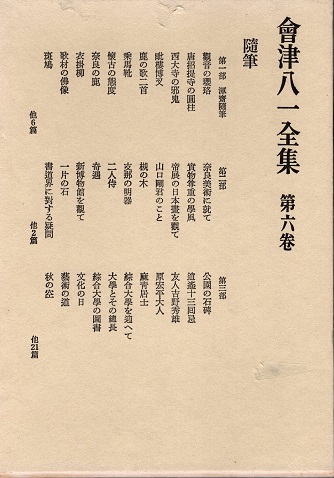 會津八一全集 第六卷
隨筆
第一部 渾齋隨筆
觀音の瓔珞
唐招提寺の圓柱
西大寺の邪鬼
毗樓博叉
鹿の歌二首
乘馬靴
懷古の態度
奈良の鹿
衣掛柳
歌材の佛像
斑鳩
他6篇
第二部
奈良美術に就て
實物尊重の學風
帝展の日本畫を觀て
山口剛君のこと
槻の木
支那の明器
二人侍
奇遇
新博物館を觀て
一片の石
書道界に對する疑問
他2篇
第三部
公園の石碑
逍遙十三回忌
友人吉野秀雄
原宏平大人
廳靑居士
綜合大學を迎へて
大學とその總長
綜合大學の圖書
文化の日
藝術の道
秋の空
他21篇